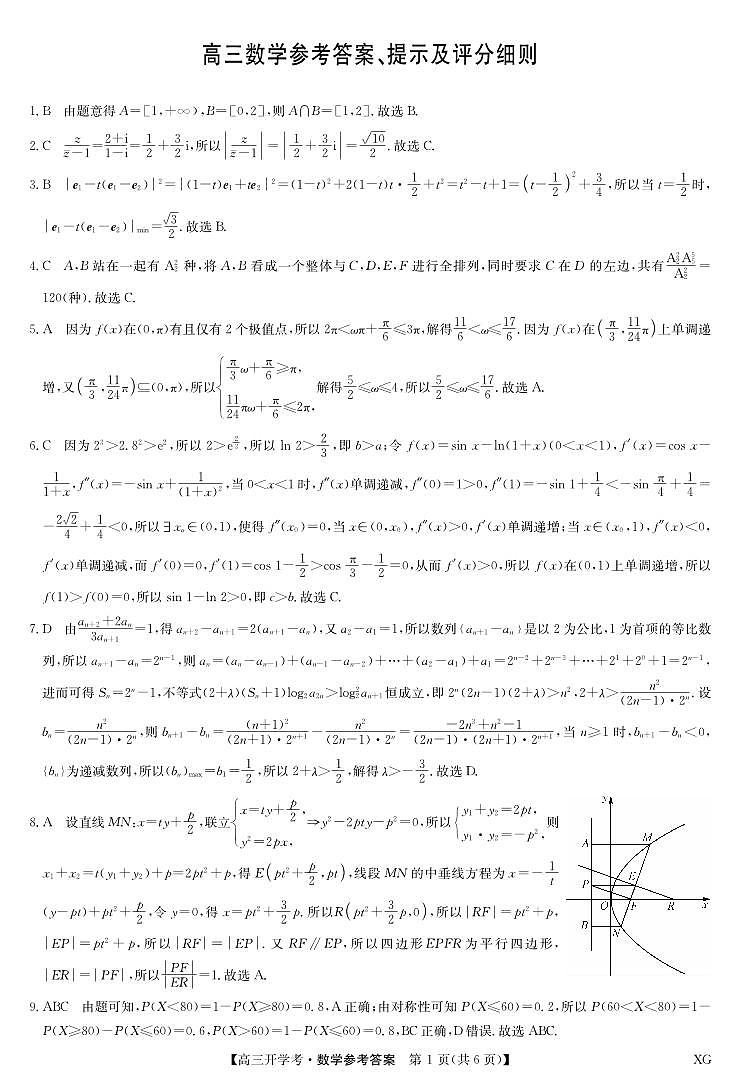 高三数学参考答案、提示及评分细则
1. B 由题意得 A=[1,+∞),B=[0,2],则 A∩B=[1,2]. 故选 B.
2. C $\frac{z}{\bar{z}-1}=\frac{2+i}{1-i}=\frac{1}{2}+\frac{3}{2}i$,所以$\left|\frac{z}{\bar{z}-1}\right|=\left|\frac{1}{2}+\frac{3}{2}i\right|=\frac{\sqrt{10}}{2}$. 故选 C.
3. B $|e_1-t(e_1-e_2)|^2=|(1-t)e_1+te_2|^2=(1-t)^2+2(1-t)t\cdot\frac{1}{2}+t^2=t^2-t+1=\left(t-\frac{1}{2}\right)^2+\frac{3}{4}$,所以当 $t=\frac{1}{2}$ 时,
$|e_1-t(e_1-e_2)|_{min}=\frac{\sqrt{3}}{2}$. 故选 B.
4. C A,B 站在一起有 $A_2^2$ 种,将 A,B 看成一个整体与 C,D,E,F 进行全排列,同时要求 C 在 D 的左边,共有$\frac{A_2^2A_5^5}{A_2^2}$=
120(种). 故选 C.
5. A 因为 f(x)在(0,π)有且仅有 2 个极值点,所以 $2π<ωπ+\frac{π}{6}≤3π$,解得$\frac{11}{6}<ω≤\frac{17}{6}$. 因为 f(x)在$\left(\frac{π}{3},\frac{11}{24}π\right)$上单调递
增,又$\left(\frac{π}{3},\frac{11}{24}π\right)⊆(0,π)$,所以$\begin{cases}\frac{π}{3}ω+\frac{π}{6}≥π,\\\frac{11}{24}πω+\frac{π}{6}≤2π,\end{cases}$解得$\frac{5}{2}≤ω≤4$,所以$\frac{5}{2}≤ω≤\frac{17}{6}$. 故选 A.
6. C 因为 $2^3>2.8^2>e^2$,所以 $2>e^{\frac{2}{3}}$,所以 $\ln 2>\frac{2}{3}$,即 b>a;令 f(x)=sin x−ln(1+x)(0<x<1),f′(x)=cos x−
$\frac{1}{1+x}$,f″(x)=−sin x+$\frac{1}{(1+x)^2}$,当 0<x<1 时,f″(x)单调递减,f″(0)=1>0,f″(1)=−sin 1+$\frac{1}{4}$<−sin $\frac{π}{4}+\frac{1}{4}$=
$-\frac{2\sqrt{2}}{4}+\frac{1}{4}<0$,所以∃$x_0$∈(0,1),使得 f″($x_0$)=0,当 x∈(0,$x_0$),f″(x)>0,f′(x)单调递增;当 x∈($x_0$,1),f″(x)<0,
f′(x)单调递减,而 f′(0)=0,f′(1)=cos 1−$\frac{1}{2}$>cos $\frac{π}{3}-\frac{1}{2}$=0,从而 f′(x)>0,所以 f(x)在(0,1)上单调递增,所以
f(1)>f(0)=0,所以 sin 1−ln 2>0,即 c>b. 故选 C.
7. D 由$\frac{a_{n+2}+2a_n}{3a_{n+1}}=1$,得 $a_{n+2}-a_{n+1}=2(a_{n+1}-a_n)$,又 $a_2-a_1=1$,所以数列{$a_{n+1}-a_n$}是以 2 为公比,1 为首项的等比数
列,所以 $a_{n+1}-a_n=2^{n-1}$,则 $a_n=(a_n-a_{n-1})+(a_{n-1}-a_{n-2})+\cdots+(a_2-a_1)+a_1=2^{n-2}+2^{n-3}+\cdots+2^1+2^0+1=2^{n-1}$,
进而可得 $S_n=2^n-1$,不等式$(2+λ)(S_n+1)\log_2a_{2n}>\log_2^2a_{n+1}$恒成立,即 $2^n(2n-1)(2+λ)>n^2$,$2+λ>\frac{n^2}{(2n-1)\cdot2^n}$. 设
$b_n=\frac{n^2}{(2n-1)\cdot2^n}$,则 $b_{n+1}-b_n=\frac{(n+1)^2}{(2n+1)\cdot2^{n+1}}-\frac{n^2}{(2n-1)\cdot2^n}=\frac{-2n^3+n^2-1}{(2n-1)\cdot(2n+1)\cdot2^{n+1}}$,当 n≥1 时,$b_{n+1}-b_n<0$,
{$b_n$}为递减数列,所以$(b_n)_{max}=b_1=\frac{1}{2}$,所以 $2+λ>\frac{1}{2}$,解得 $λ>-\frac{3}{2}$. 故选 D.
8. A 设直线 MN:$x=ty+\frac{p}{2}$,联立$\begin{cases}x=ty+\frac{p}{2},\\y^2=2px,\end{cases}$⇒$y^2-2pty-p^2=0$,所以$\begin{cases}y_1+y_2=2pt,\\y_1\cdot y_2=-p^2,\end{cases}$则
$x_1+x_2=t(y_1+y_2)+p=2pt^2+p$,得 $E\left(pt^2+\frac{p}{2},pt\right)$,线段 MN 的中垂线方程为 $x=-\frac{1}{t}$
$(y-pt)+pt^2+\frac{p}{2}$,令 y=0,得 $x=pt^2+\frac{3}{2}p$. 所以$R\left(pt^2+\frac{3}{2}p,0\right)$,所以$|RF|=pt^2+p$,
$|EP|=pt^2+p$,所以|RF|=|EP|. 又 RF∥EP,所以四边形 EPFR 为平行四边形,
|ER|=|PF|,所以$\frac{|PF|}{|ER|}=1$. 故选 A.
y
A
M
P
E
O
F
R
x
B
N
9. ABC 由题可知,P(X<80)=1−P(X≥80)=0.8,A 正确;由对称性可知 P(X≤60)=0.2,所以 P(60<X<80)=1−
P(X≥80)−P(X≤60)=0.6,P(X>60)=1−P(X≤60)=0.8,BC 正确,D 错误. 故选 ABC.
【高三开学考·数学参考答案 第 1 页(共 6 页)】
XG